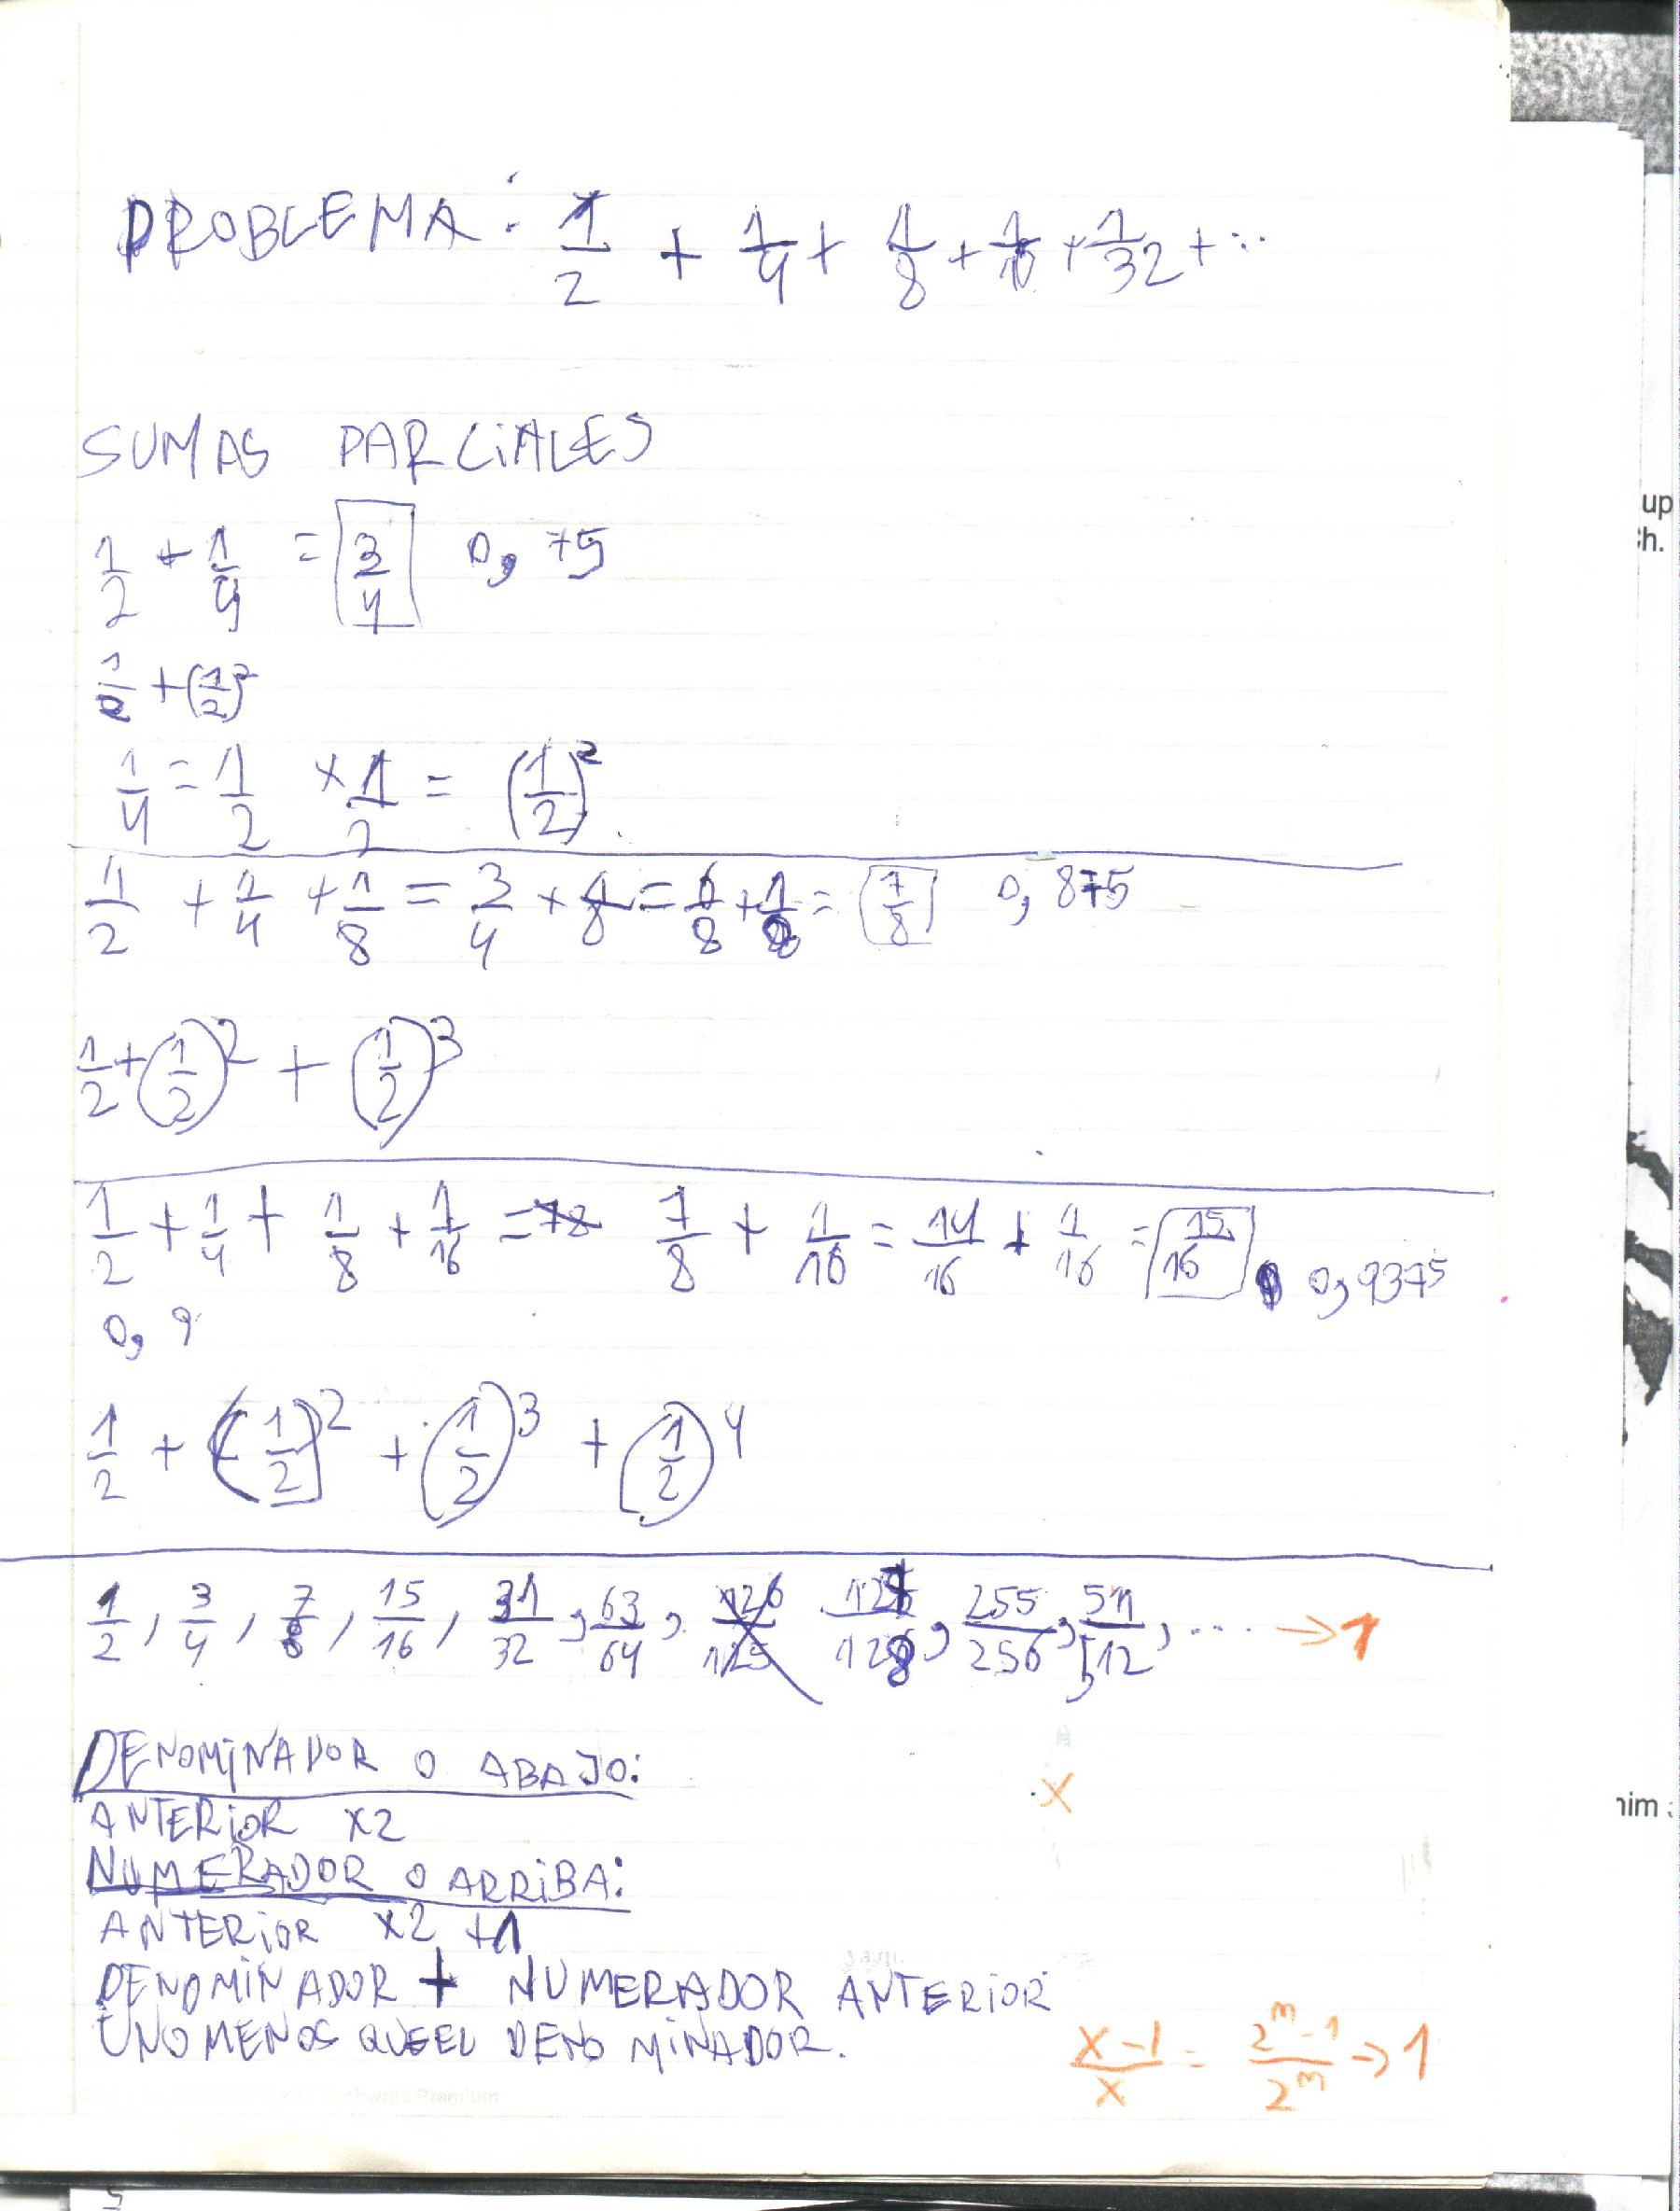 PROBLEMA: 1/2 + 1/4 + 1/8 + 1/16 + 1/32 + ...
SUMAS PARCIALES
1/2 + 1/4 = 3/4 0,75
1/2 + (1/2)²
1/4 = 1/2 × 1/2 = (1/2)²
1/2 + 1/4 + 1/8 = 3/4 + 1/8 = 6/8 + 1/8 = 7/8 0,875
1/2 + (1/2)² + (1/2)³
1/2 + 1/4 + 1/8 + 1/16 = 7/8 + 1/16 = 14/16 + 1/16 = 15/16 0,9375
0,9
1/2 + (1/2)² + (1/2)³ + (1/2)⁴
1/2, 3/4, 7/8, 15/16, 31/32, 63/64, 127/128, 255/256, 511/512, .... → 1
DENOMINADOR O ABAJO:
x
ANTERIOR x2
NUMERADOR O ARRIBA:
ANTERIOR x2 +1
DENOMINADOR + NUMERADOR ANTERIOR
UNO MENOS QUE EL DENOMINADOR.
x-1/x = 2ᵐ-1/2ᵐ → 1
up
ch.
nim :